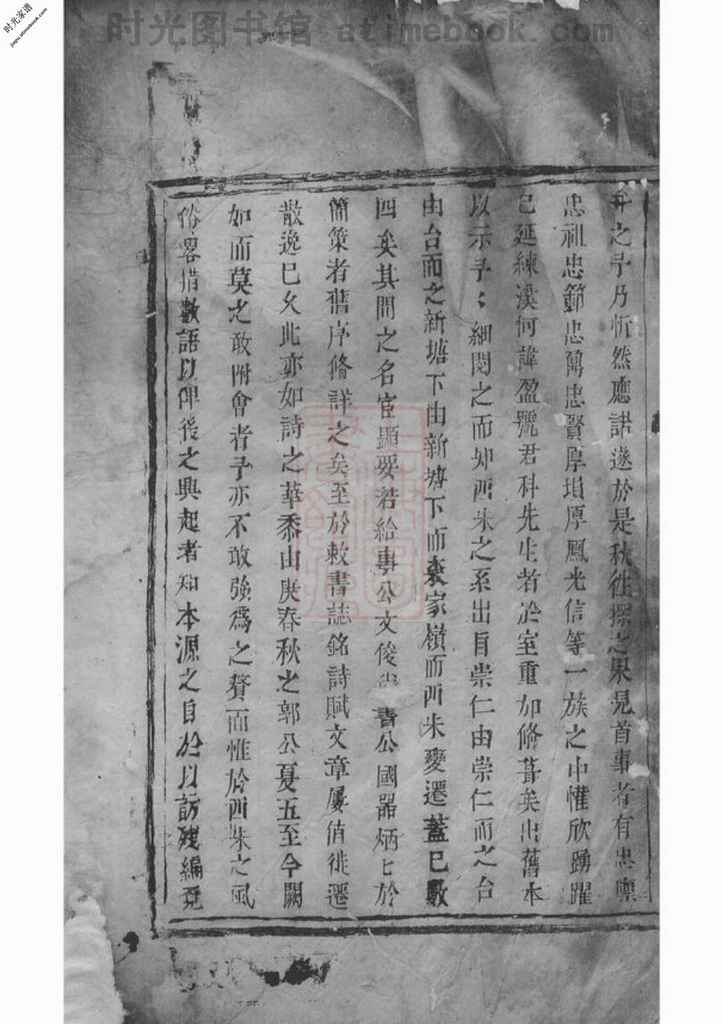 时光图书馆 atimebook.com
时光家谱
jiapu.atimebook.com
弁之予乃忻然應諾遂於是秋往探之果見首事者有忠輿
忠祖忠節忠萬忠賢厚塤厚鳳光信等一族之中懽欣踴躍
已延練溪何諱盈號君科先生者於室重加修葺矣出舊本
以示予〻細閱之而知西朱之系出自崇仁由崇仁而之台
由台而之新塘下由新塘下而袤家嶺而西朱變遷蓋已數
四矣其間之名宦顯要若給事公文俊 書公國器炳〻於
簡策者舊序修詳之矣至於敕書誌銘詩賦文章屢値徙遷
散逸已久此亦如詩之華黍由庚春秋之郭公夏五至今闕
如而莫之敢附會者予亦不敢強爲之贅而惟於西朱之風
俗畧措數語以俾後之興起者知本源之自於以訪殘編